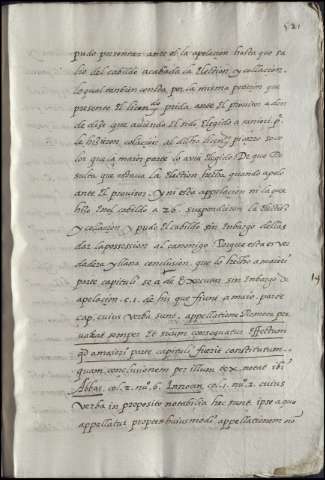 521
pudo presentar ante el la apelacion hasta que sa
lio del cabildo acabada la Election y collacion
lo qual tanbien consta por la misma peticion que
presento El licen.do prida ante El provisor a don
de dise que aviendo El sido Elegido a maiori p.e
le hizieron colacion al dicho licen.do picazo so co
lor que la maior parte lo avia Elegido De que Re
sulta que estava la Election hecha quando apelo
ante El provisor. y ni esta appelacion ni la que
hizo En el cabildo a 26. suspendieron la Electio
y collacion y pudo El cabildo sin Enbargo dellas
dar la possession al canonigo Porque esta es ver
dadera y llana conclusion, que lo hecho a maiori
parte capituli se a de Executar sin Enbargo de
apelacion. c.1. de his que fiunt a maio. parte
cap. cuius verba sunt, appellatione Remota per
volat semper et suum consequatur Effectum
qd a maiori parte capituli fuerit constitutum
quam conclusionem per illum tex. notat ibi
Abbas, col. 2. nu.o 6. Innocen. col. 1. nu. 2. cuius
verba in proposito notabilia hec sunt. ipse a quo
appellatur propter huiusmodi appellationem no